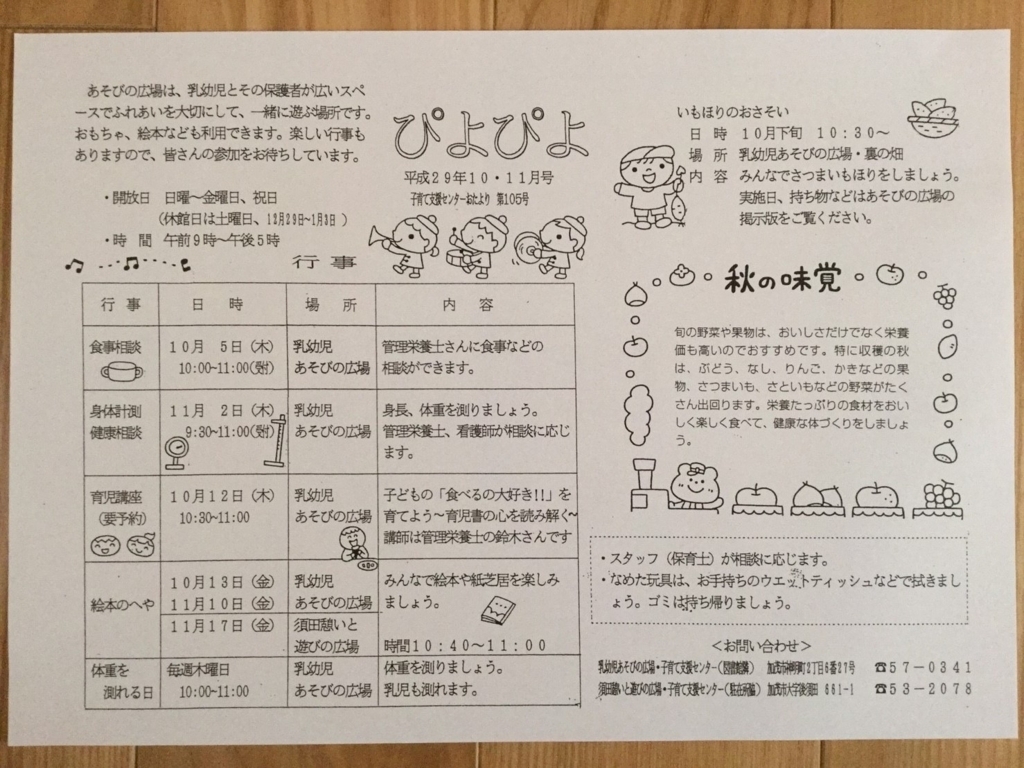 あそびの広場は、乳幼児とその保護者が広いスペ
ースでふれあいを大切にして、一緒に遊ぶ場所です。
おもちゃ、絵本なども利用できます。楽しい行事も
ありますので、皆さんの参加をお待ちしています。
・開放日 日曜～金曜日、祝日
(休館日は土曜日、12月29日～1月3日)
・時 間 午前9時～午後5時
ぴよぴよ
平成29年10・11月号
子育て支援センターおたより 第105号
行 事
行 事 日 時 場 所 内 容
食事相談 10月 5日(木) 乳幼児 管理栄養士さんに食事などの
10:00~11:00(受付) あそびの広場 相談ができます。
身体計測 11月 2日(木) 乳幼児 身長、体重を測りましょう。
健康相談 9:30~11:00(受付) あそびの広場 管理栄養士、看護師が相談に応じ
ます。
育児講座 10月12日(木) 乳幼児 子どもの「食べるの大好き!!」を
(要予約) 10:30~11:00 あそびの広場 育てよう～育児書の心を読み解く～
講師は管理栄養士の鈴木さんです
10月13日(金) 乳幼児 みんなで絵本や紙芝居を楽しみ
絵本のへや 11月10日(金) あそびの広場 ましょう。
11月17日(金) 須田憩いと
遊びの広場 時間10:40～11:00
体重を 毎週木曜日 乳幼児 体重を測りましょう。
測れる日 10:00~11:00 あそびの広場 乳児も測れます。
いもほりのおさそい
日 時 10月下旬 10:30～
場 所 乳幼児あそびの広場・裏の畑
内 容 みんなでさつまいもほりをしましょう。
実施日、持ち物などはあそびの広場の
掲示版をご覧ください。
秋の味覚
旬の野菜や果物は、おいしさだけでなく栄養
価も高いのでおすすめです。特に収穫の秋
は、ぶどう、なし、りんご、かきなどの果
物、さつまいも、さといもなどの野菜がたく
さん出回ります。栄養たっぷりの食材をおい
しく楽しく食べて、健康な体づくりをしましょ
う。
・スタッフ(保育士)が相談に応じます。
・なめた玩具は、お手持ちのウエットティッシュなどで拭きまし
ょう。ゴミは持ち帰りましょう。
<お問い合わせ>
乳幼児あそびの広場・子育て支援センター(図書館隣) 加茂市神明町2丁目6番27号 ☎57-0341
須田憩いと遊びの広場・子育て支援センター(駐在所隣) 加茂市大字後須田 661-1 ☎53-2078